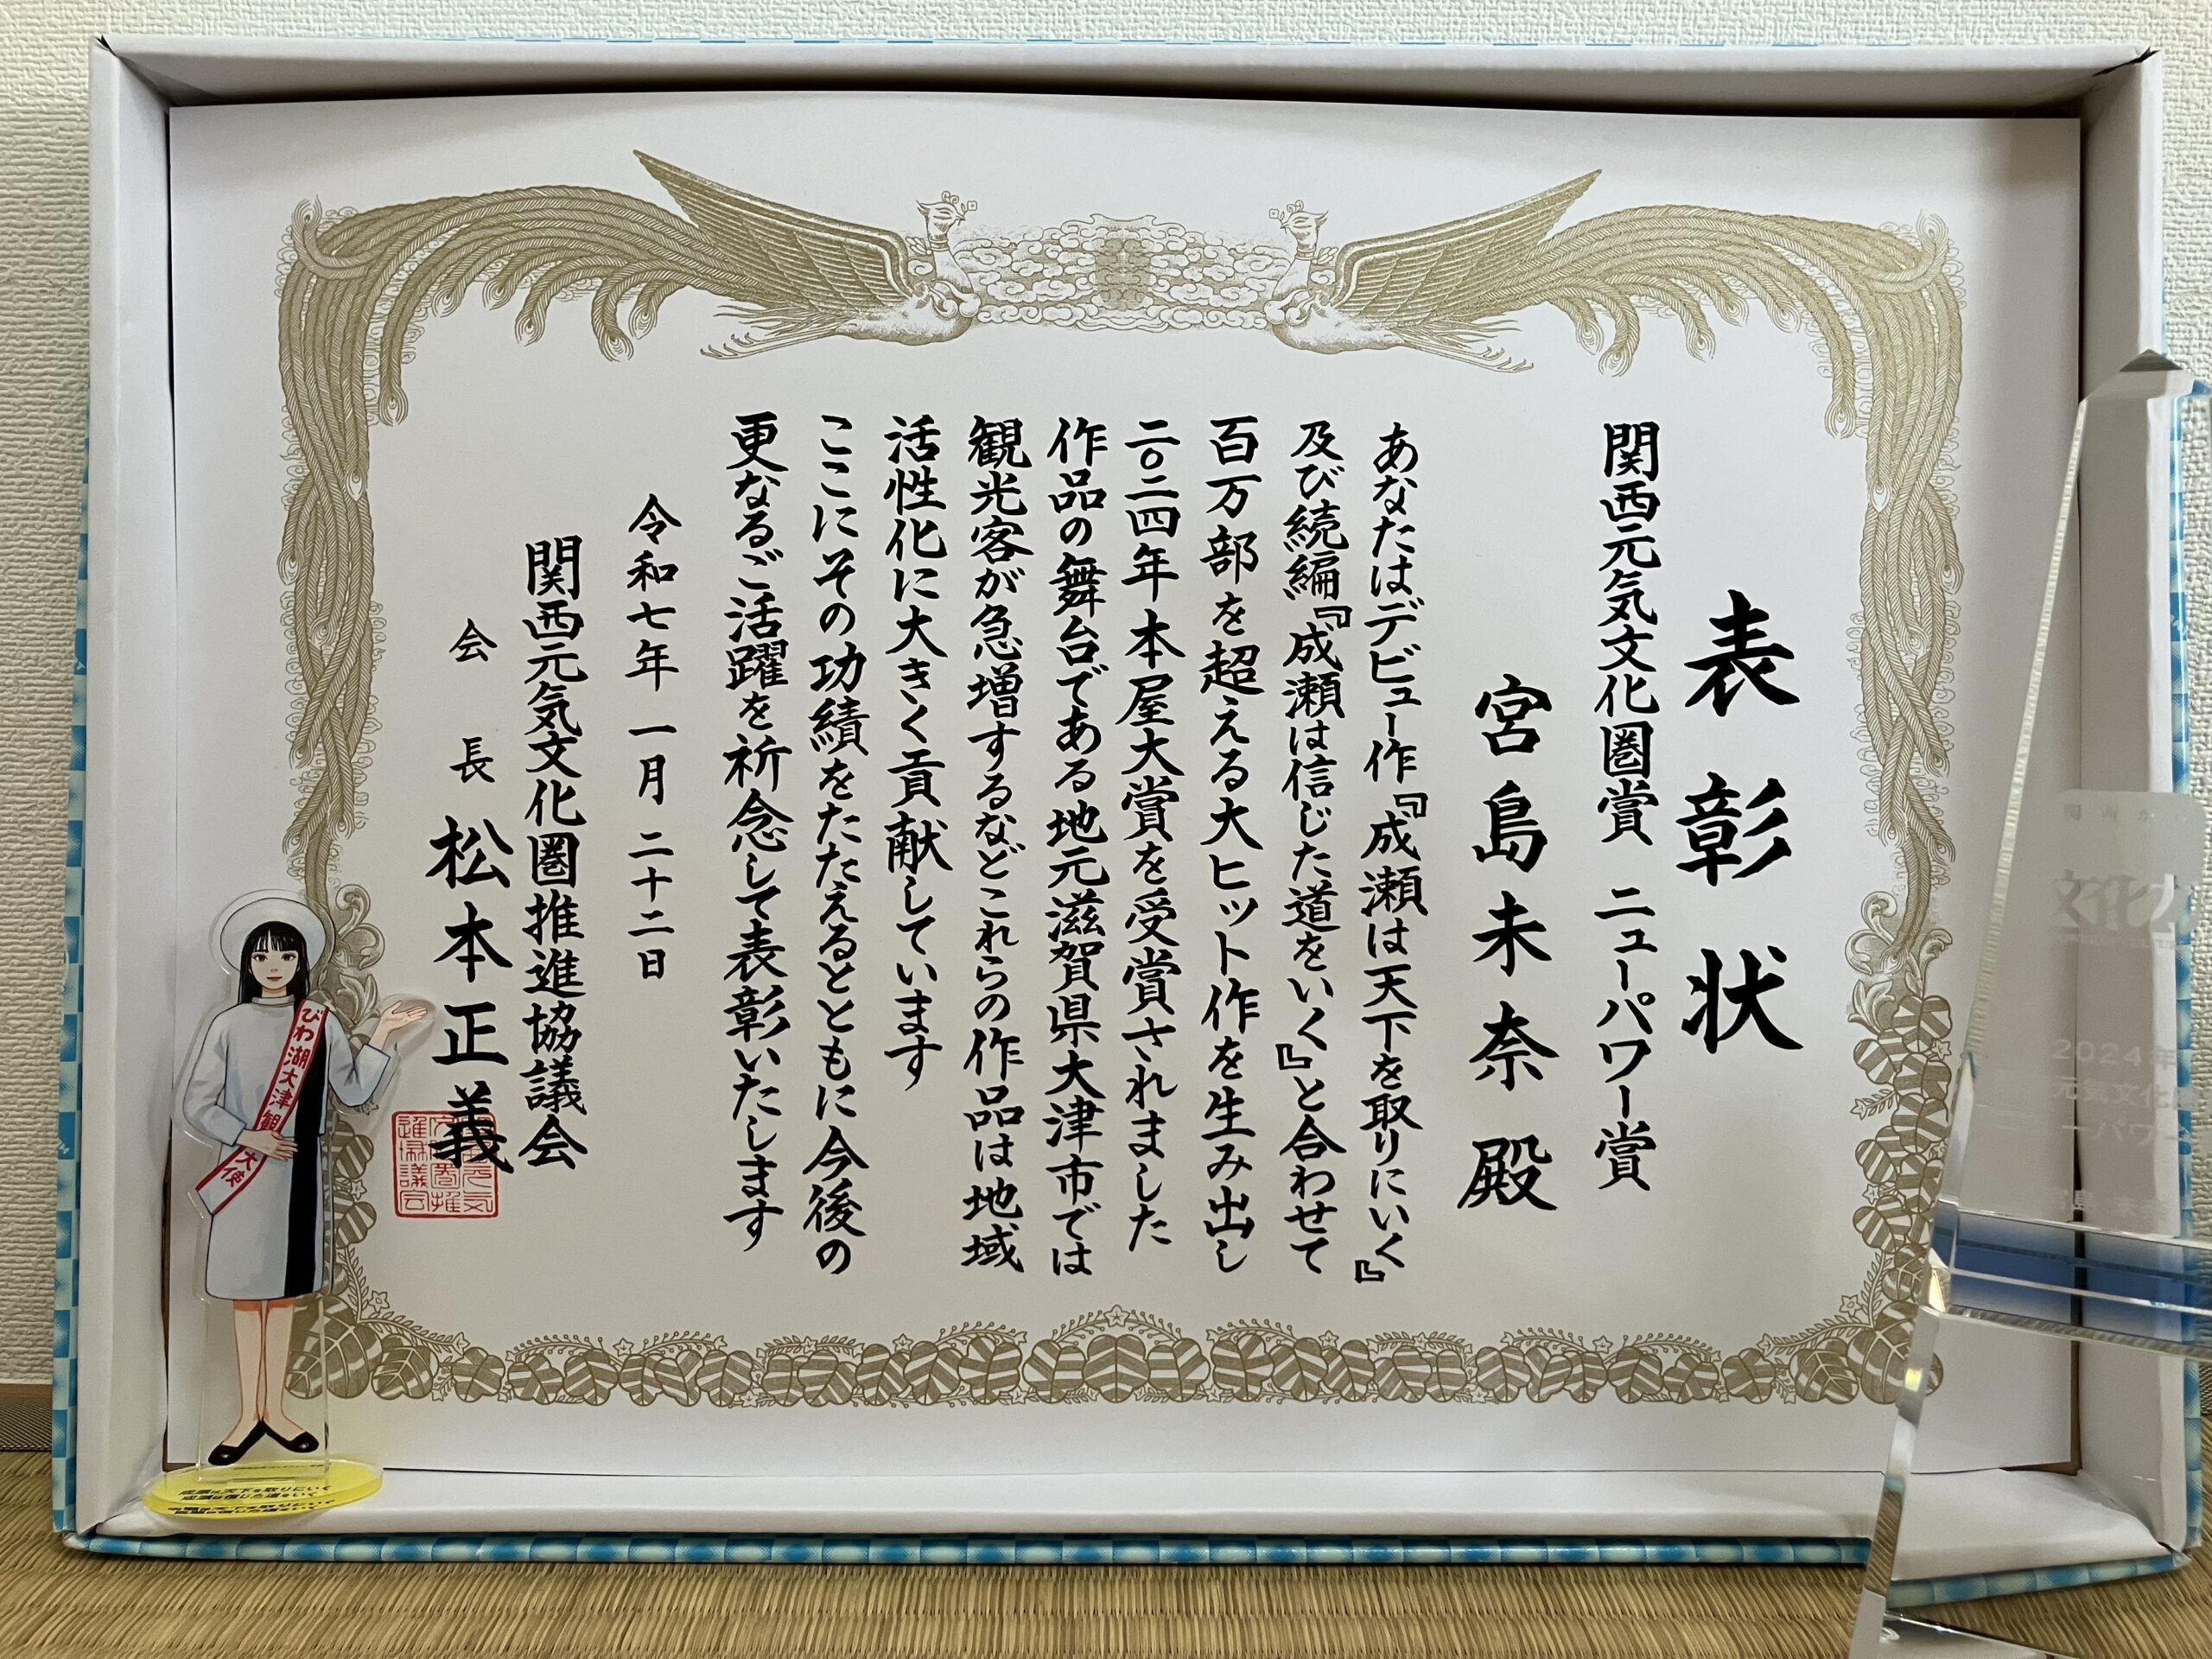 表彰状
関西元気文化圏賞 ニューパワー賞
宮島未奈 殿
あなたはデビュー作『成瀬は天下を取りにいく』
及び続編『成瀬は信じた道をいく』と合わせて
百万部を超える大ヒット作を生み出し
二〇二四年本屋大賞を受賞されました
作品の舞台である地元滋賀県大津市では
観光客が急増するなどこれらの作品は地域
活性化に大きく貢献しています
ここにその功績をたたえるとともに今後の
更なるご活躍を祈念して表彰いたします
令和七年 一月 二十二日
関西元気文化圏推進協議会
会長 松本正義
びわ湖大津観 大使
成瀬は天下を取りにいく
成瀬は信じた道をいく
文化力
2024年
元気文化
ーパワー